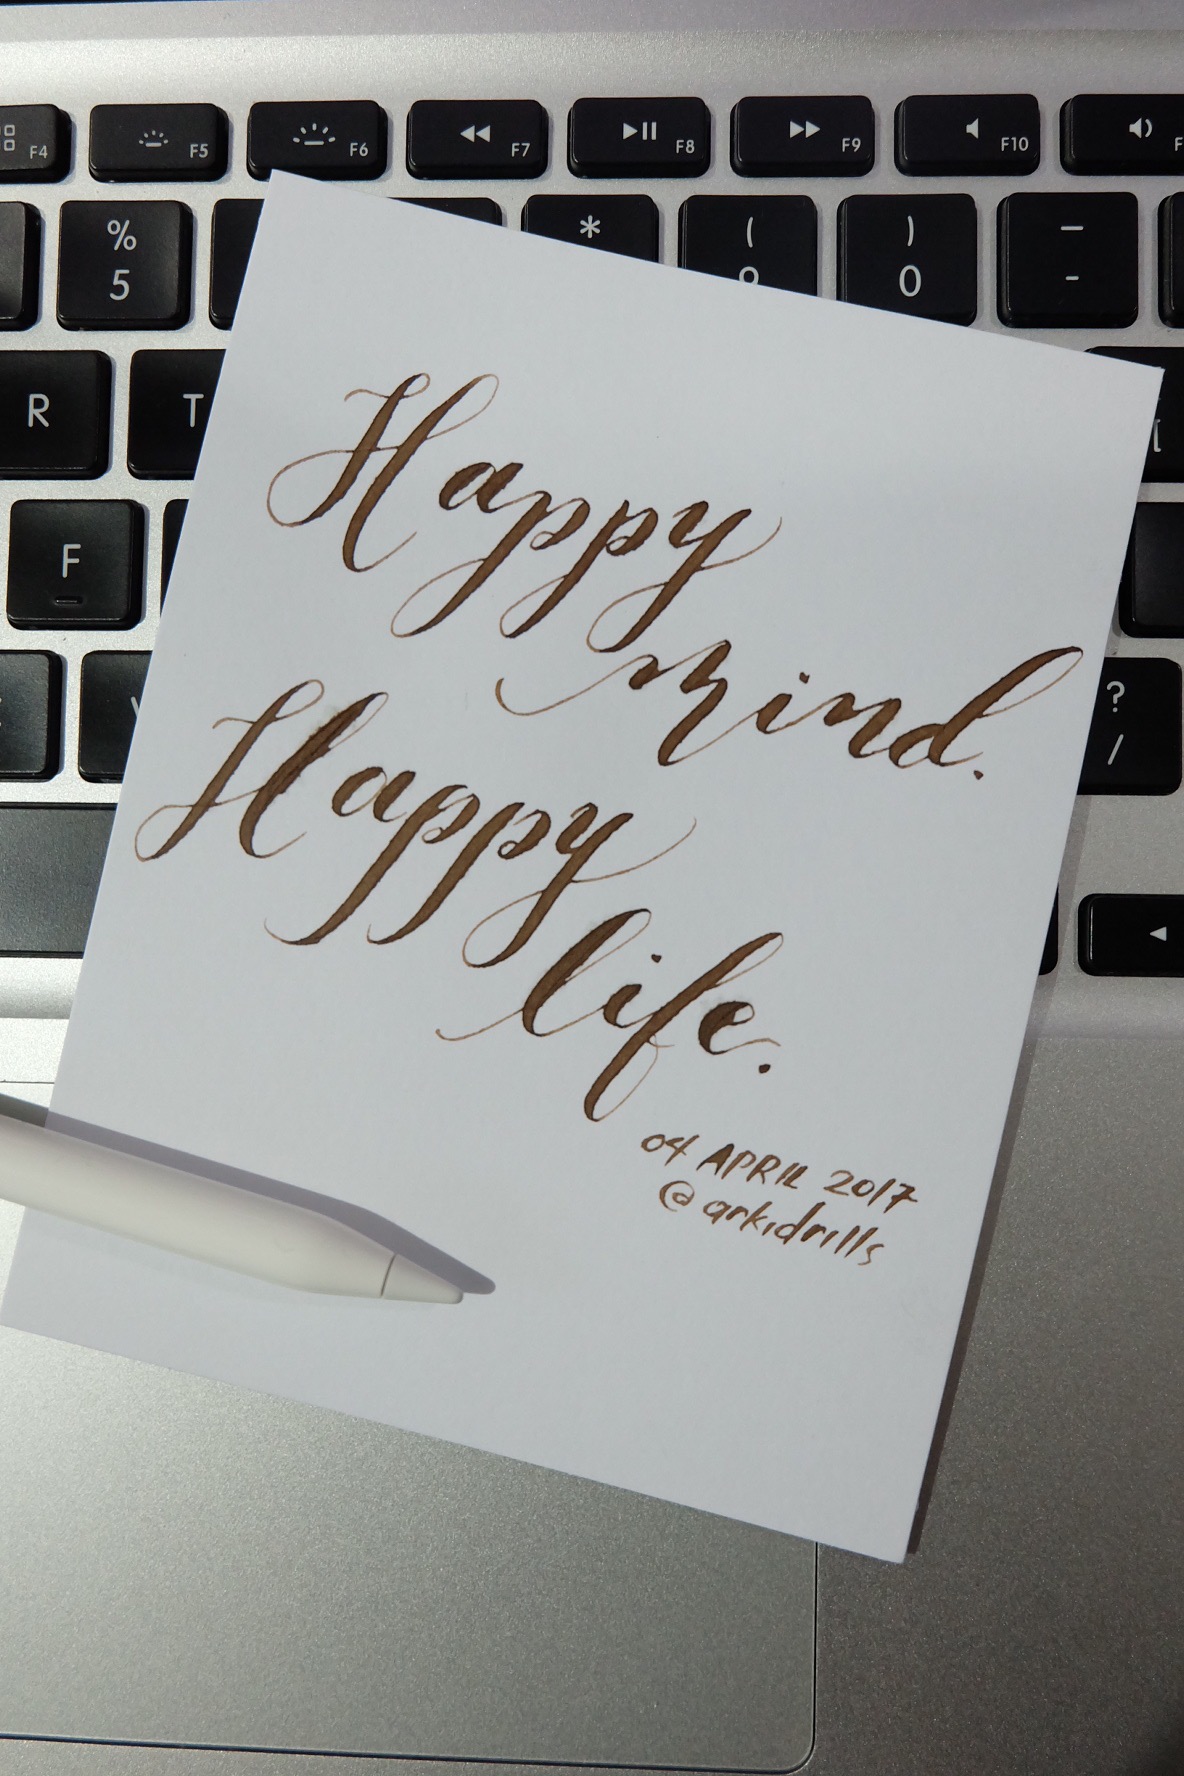 F4 F5 F6 F7 F8 F9 F10 F
% * ( ) —
5 9 0 -
R T [
F
? 
/
Happy
mind.
Happy
life.
04 APRIL 2017
@arkidrills